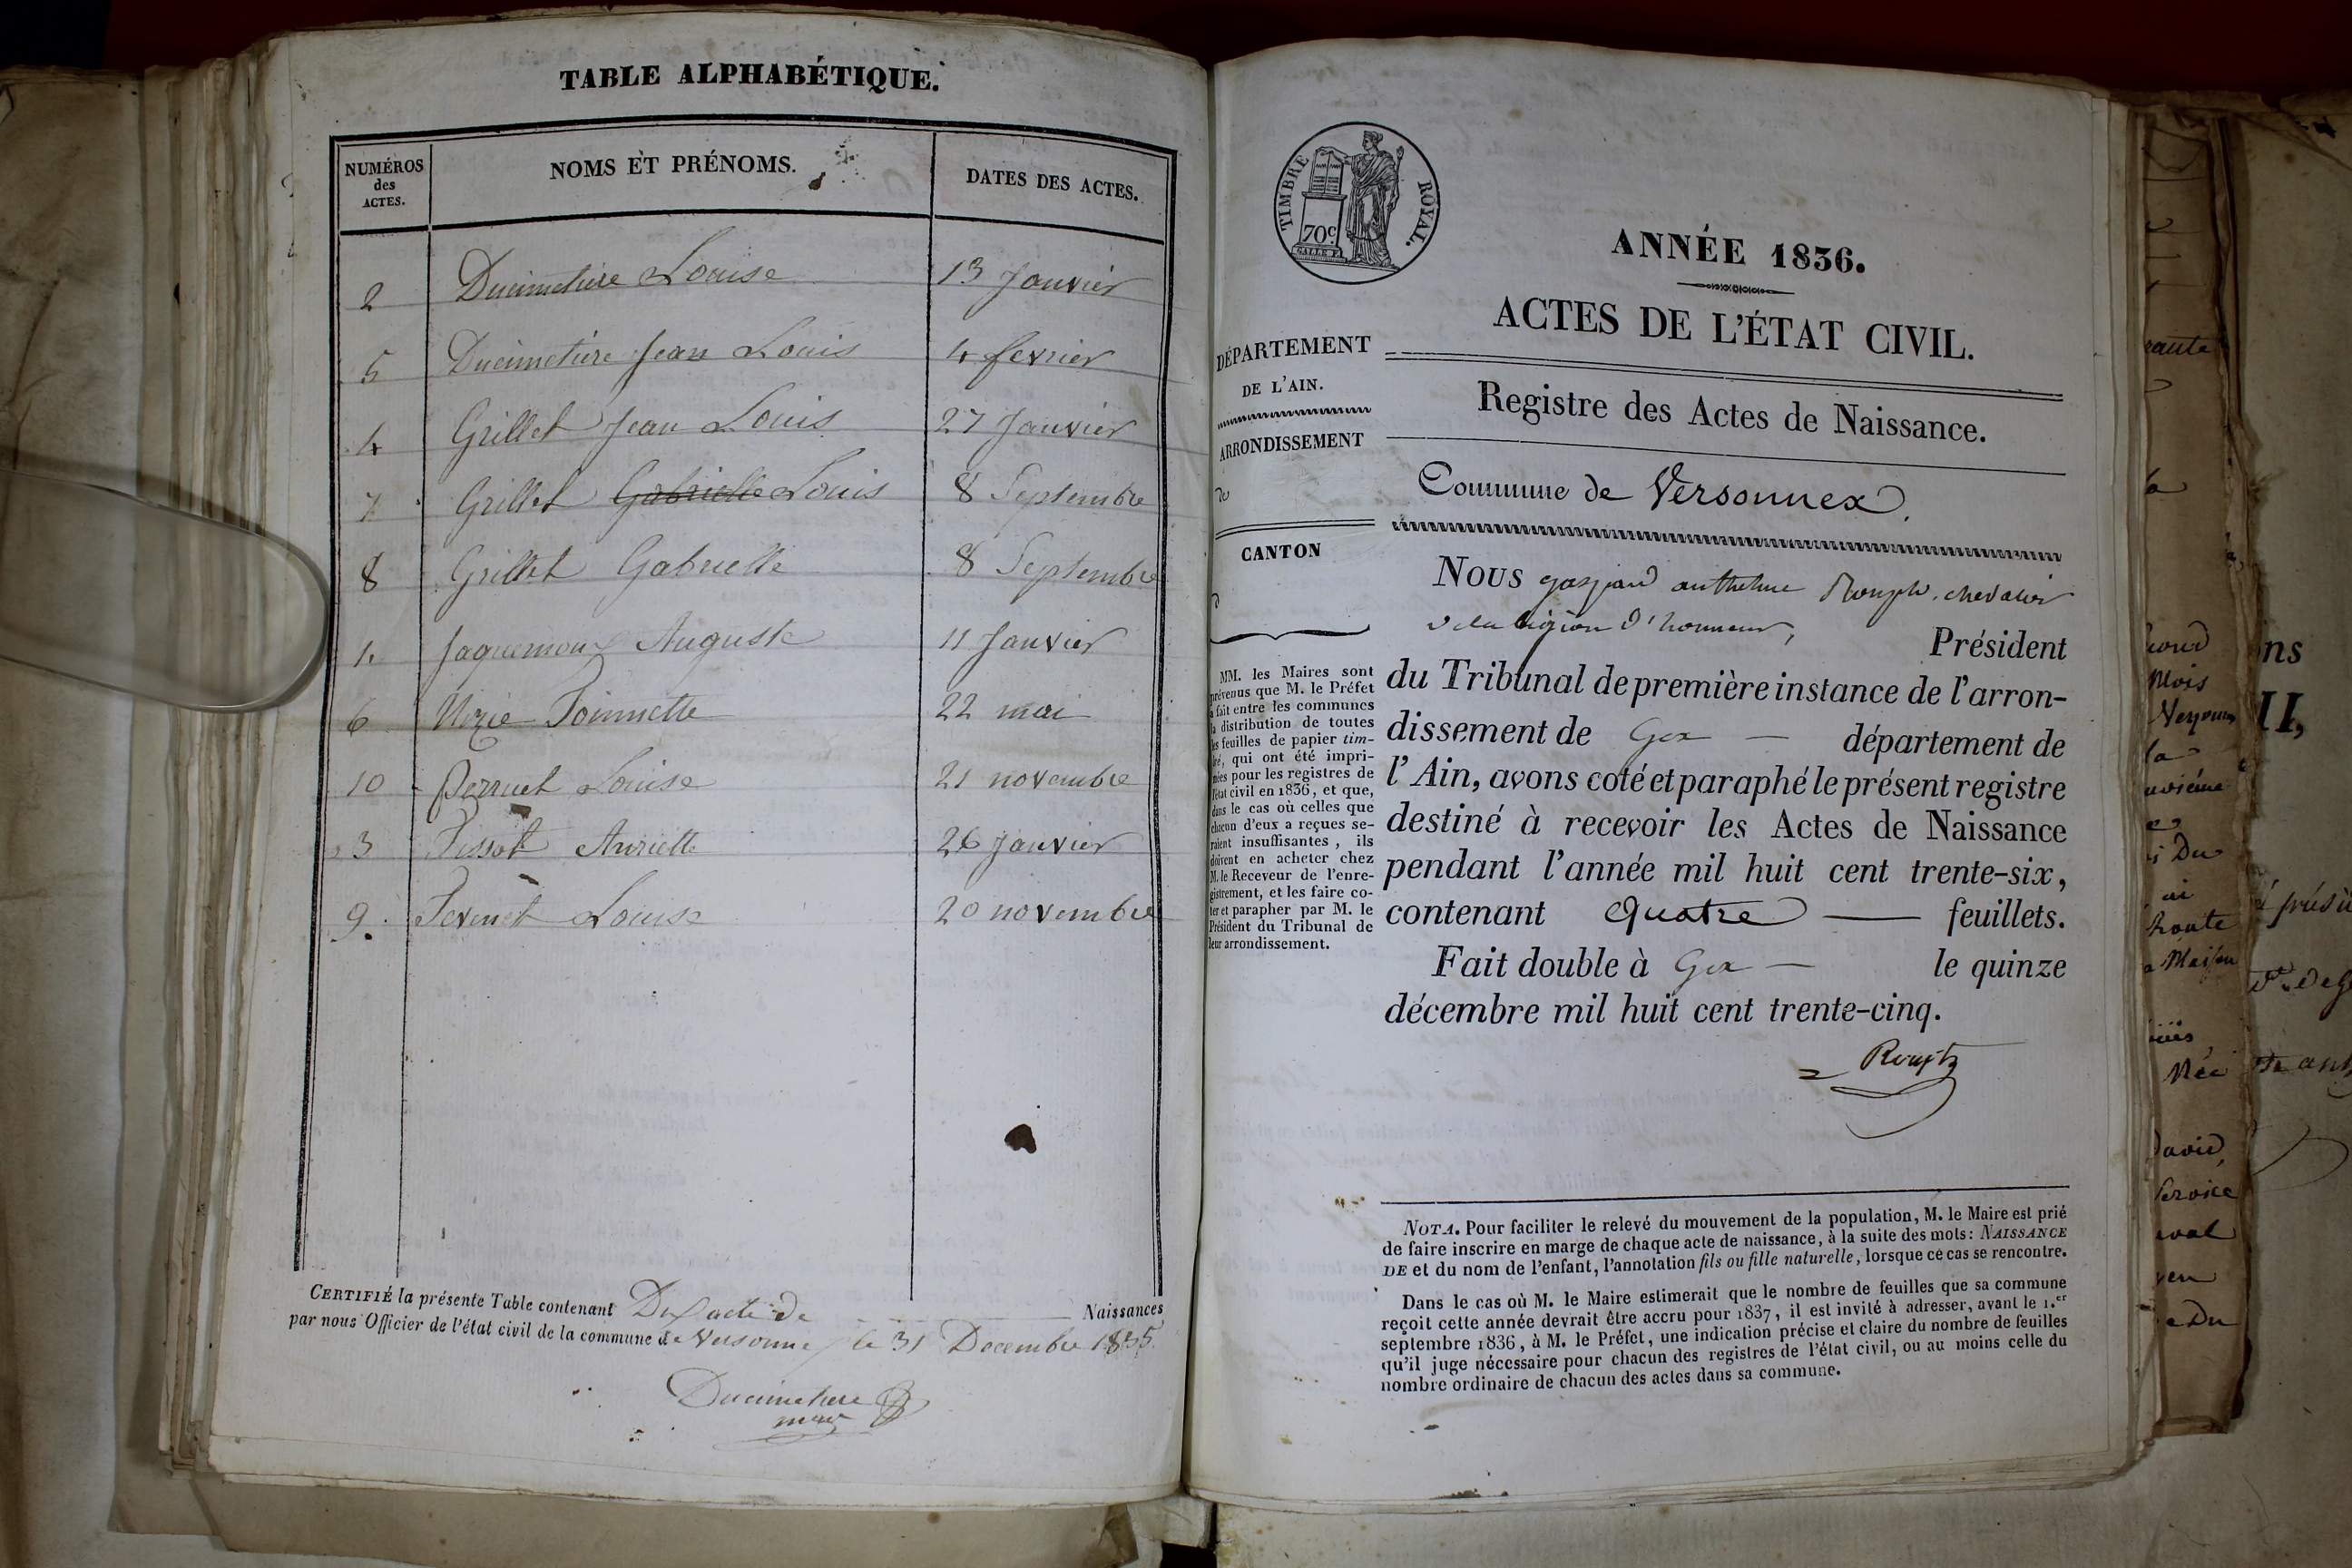 TABLE ALPHABÉTIQUE.
NUMÉROS des ACTES.
NOMS ET PRÉNOMS.
DATES DES ACTES.
2 Ducimetiere Louise 13 Janvier
5 Ducimetiere Jean Louis 4 fevrier
4 Grillet Jean Louis 27 Janvier
7 Grillet Gabrielle Louis 8 Septembre
8 Grillet Gabrielle 8 Septembre
1. Jaquemoux Auguste 11 Janvier
6 22 mai
10 Perruet Louise 21 novembre
3 Tissot 26 Janvier
9. Louise 20 novembre
CERTIFIÉ la présente Table contenant Dix acte de Naissances
par nous Officier de l'état civil de la commune de Versonnex le 31 Decembre 1835
Ducimetiere
TIMBRE ROYAL.
70c.
ANNÉE 1836.
ACTES DE L'ÉTAT CIVIL.
Registre des Actes de Naissance.
Commune de Versonnex.
DÉPARTEMENT
DE L'AIN.
ARRONDISSEMENT
de
CANTON
MM. les Maires sont
prévenus que M. le Préfet
a fait entre les communes
la distribution de toutes
les feuilles de papier tim-
bré, qui ont été impri-
mées pour les registres de
l'état civil en 1836, et que,
dans le cas où celles que
chacun d'eux a reçues se-
raient insuffisantes, ils
doivent en acheter chez
M. le Receveur de l'enre-
gistrement, et les faire co-
ter et parapher par M. le
Président du Tribunal de
leur arrondissement.
Nous gaspard anthelme Rouph, chevalier
de la légion d'honneur, Président
du Tribunal de première instance de l'arron-
dissement de Gex — département de
l'Ain, avons coté et paraphé le présent registre
destiné à recevoir les Actes de Naissance
pendant l'année mil huit cent trente-six,
contenant quatre — feuillets.
Fait double à Gex — le quinze
décembre mil huit cent trente-cinq.
Rouph
NOTA. Pour faciliter le relevé du mouvement de la population, M. le Maire est prié
de faire inscrire en marge de chaque acte de naissance, à la suite des mots: NAISSANCE
DE et du nom de l'enfant, l'annotation fils ou fille naturelle, lorsque ce cas se rencontre.
Dans le cas où M. le Maire estimerait que le nombre de feuilles que sa commune
reçoit cette année devrait être accru pour 1837, il est invité à adresser, avant le 1.er
septembre 1836, à M. le Préfet, une indication précise et claire du nombre de feuilles
qu'il juge nécessaire pour chacun des registres de l'état civil, ou au moins celle du
nombre ordinaire de chacun des actes dans sa commune.